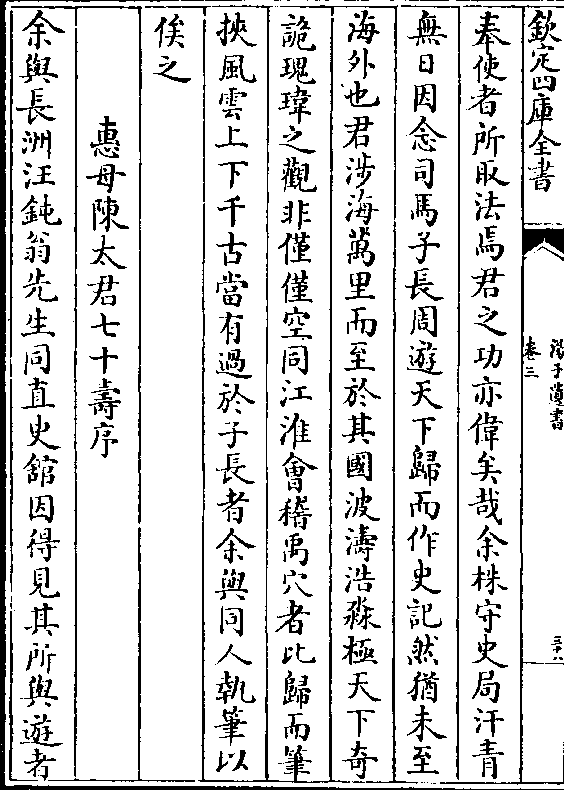 欽定四庫全書
湯子遺書
卷三
三十八
奉使者所取法焉君之功亦偉矣哉余株守史局汗青
無日因念司馬子長周遊天下歸而作史記然猶未至
海外也君涉海萬里而至於其國波濤浩淼極天下奇
詭瑰瑋之觀非僅僅空同江淮會稽禹穴者比歸而筆
挾風雲上下千古當有過於子長者余與同人執筆以
俟之
惠母陳太君七十壽序
余與長洲汪鈍翁先生同直史舘因得見其所與遊者